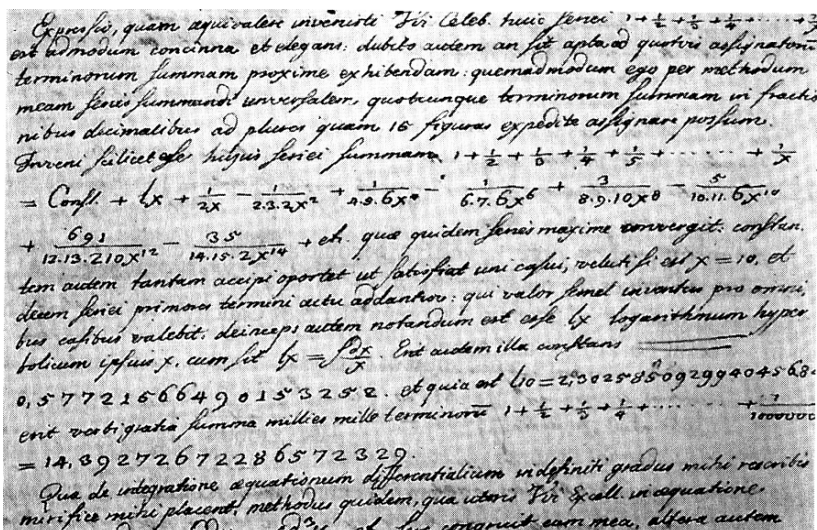 Expressio, quam aequivalere invenisti Vir Celeb. huic seriei 1+1/2+1/3+1/4+......+1/x
est admodum concinna et elegans: dubito autem an sit apta ad quotvis assignatorum
terminorum summam proxime exhibendam: quemadmodum ego per methodum
meam series summandi universalem, quotcunque terminorum summam in fractio
nibus decimalibus ad plures quam 15 figuras expedite assignare possum.
Inveni scilicet esse hujus seriei summam 1+1/2+1/3+1/4+1/5+......+1/x
= Const. + lx + 1/2x − 1/2.3.2x² + 1/4.5.6x⁴ − 1/6.7.6x⁶ + 3/8.9.10x⁸ − 5/10.11.6x¹⁰
+ 691/12.13.210x¹² − 35/14.15.2x¹⁴ + etc. quae quidem series maxime convergit: constan
tem autem tantam accipi oportet ut satisfiat uni casui, veluti si est x=10, et
decem seriei primores termini actu addantur: qui valor semel inventus pro omni
bus casibus valebit. deinceps autem notandum est esse lx logarithmum hyper
bolicum ipsius x, cum sit lx = ∫dx/x. Erit autem illa constans
0,5772156649015325 2. et quia est l10=2,302585092994045684
erit verbi gratia summa millies mille terminorum 1+1/2+1/3+1/4+......+1/1000000
= 14,392726722865 72329.
Qua de integratione aequationum differentialium indefiniti gradus mihi rescribis
mirifice mihi placent, methodus quidem, qua uteris Vir Excell. in aequatione
congruit cum mea, altera autem